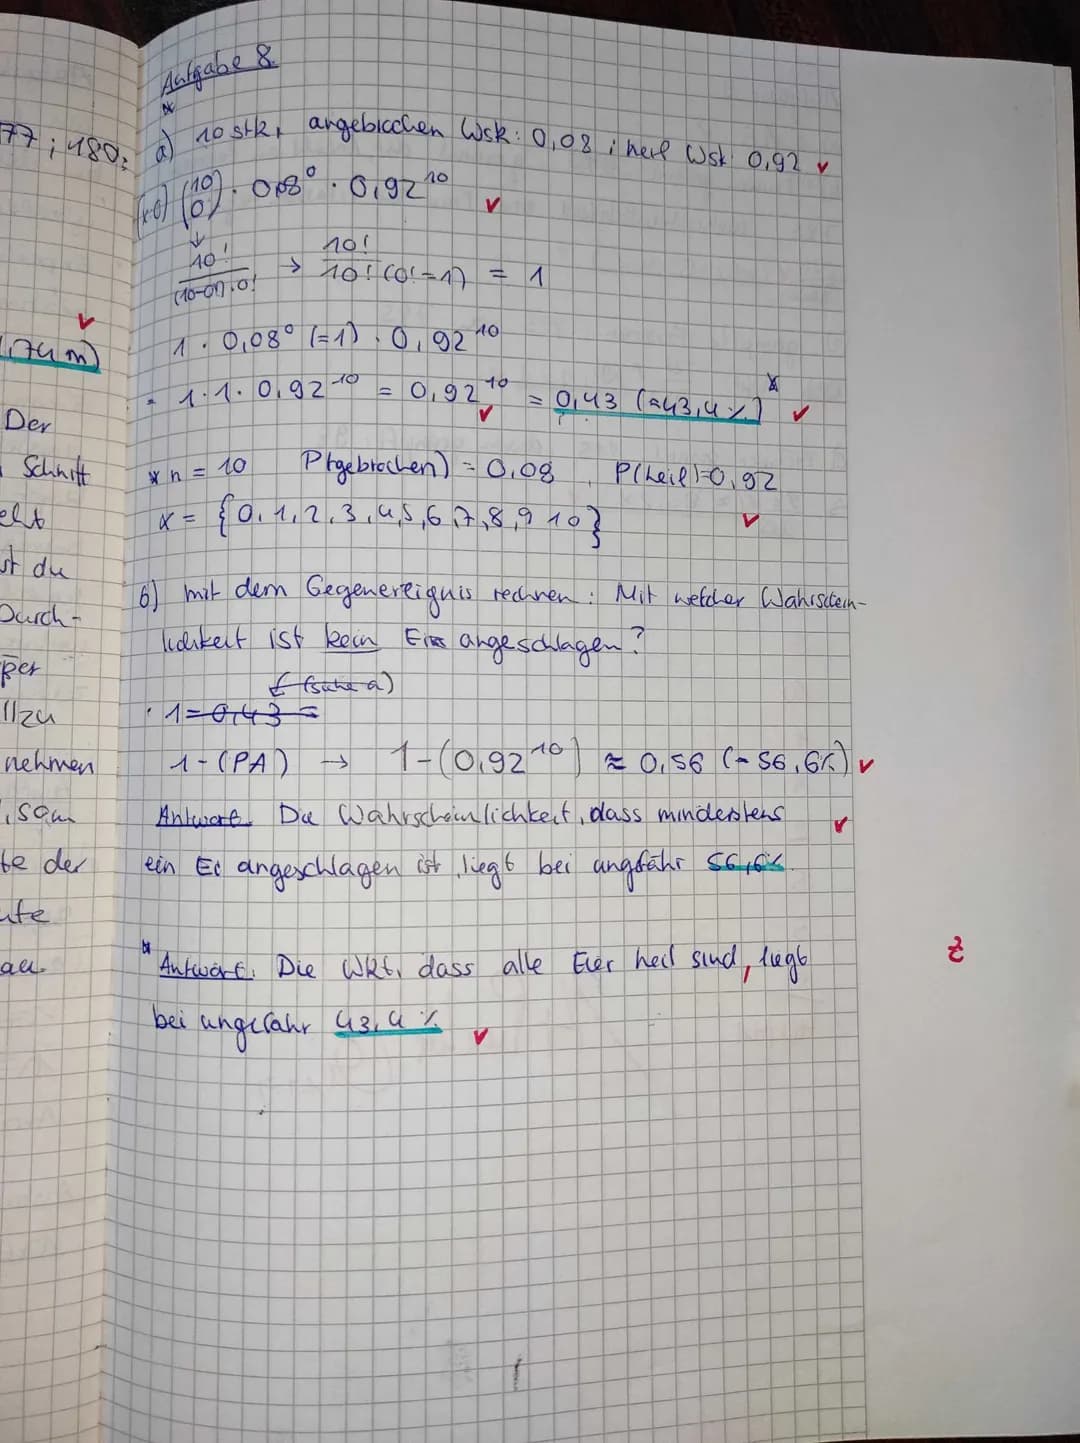 77 ; 180;
74 m)
Der
Schnitt
st du
Durch-
per
llzu
nehmen
te der
au.
Aufgabe 8.
a) 10 stk, angebrochen Wsk: 0,08 ; heil Wsk: 0,92 ✓
(10 0) · 0,08⁰ · 0,92¹⁰ ✓
↓
10! / (10-0)! · 0! → 10! / 10! (0! = 1) = 1
1 · 0,08⁰ (=1) · 0,92¹⁰
= 1 · 1 · 0,92¹⁰ = 0,92¹⁰ = 0,43 (≈43,4 %) * ✓
* n = 10 P(gebrochen) = 0,08 , P(heil) = 0,92
x = {0, 1, 2, 3, 4, 5, 6, 7, 8, 9 10} ✓
b) mit dem Gegenereignis rechnen : Mit welcher Wahrschein-
lichkeit ist kein Ei angeschlagen?
(siehe a)
1 - 0,43 =
1 - (PA) → 1 - (0,92¹⁰) ≈ 0,56 (≈ 56,6%) ✓
Antwort. Die Wahrscheinlichkeit, dass mindestens ✓
ein Ei angeschlagen ist, liegt bei ungfähr 56,6%.
* Antwort. Die Wkt, dass alle Eier heil sind, liegt Z
bei ungefähr 43,4 %. ✓